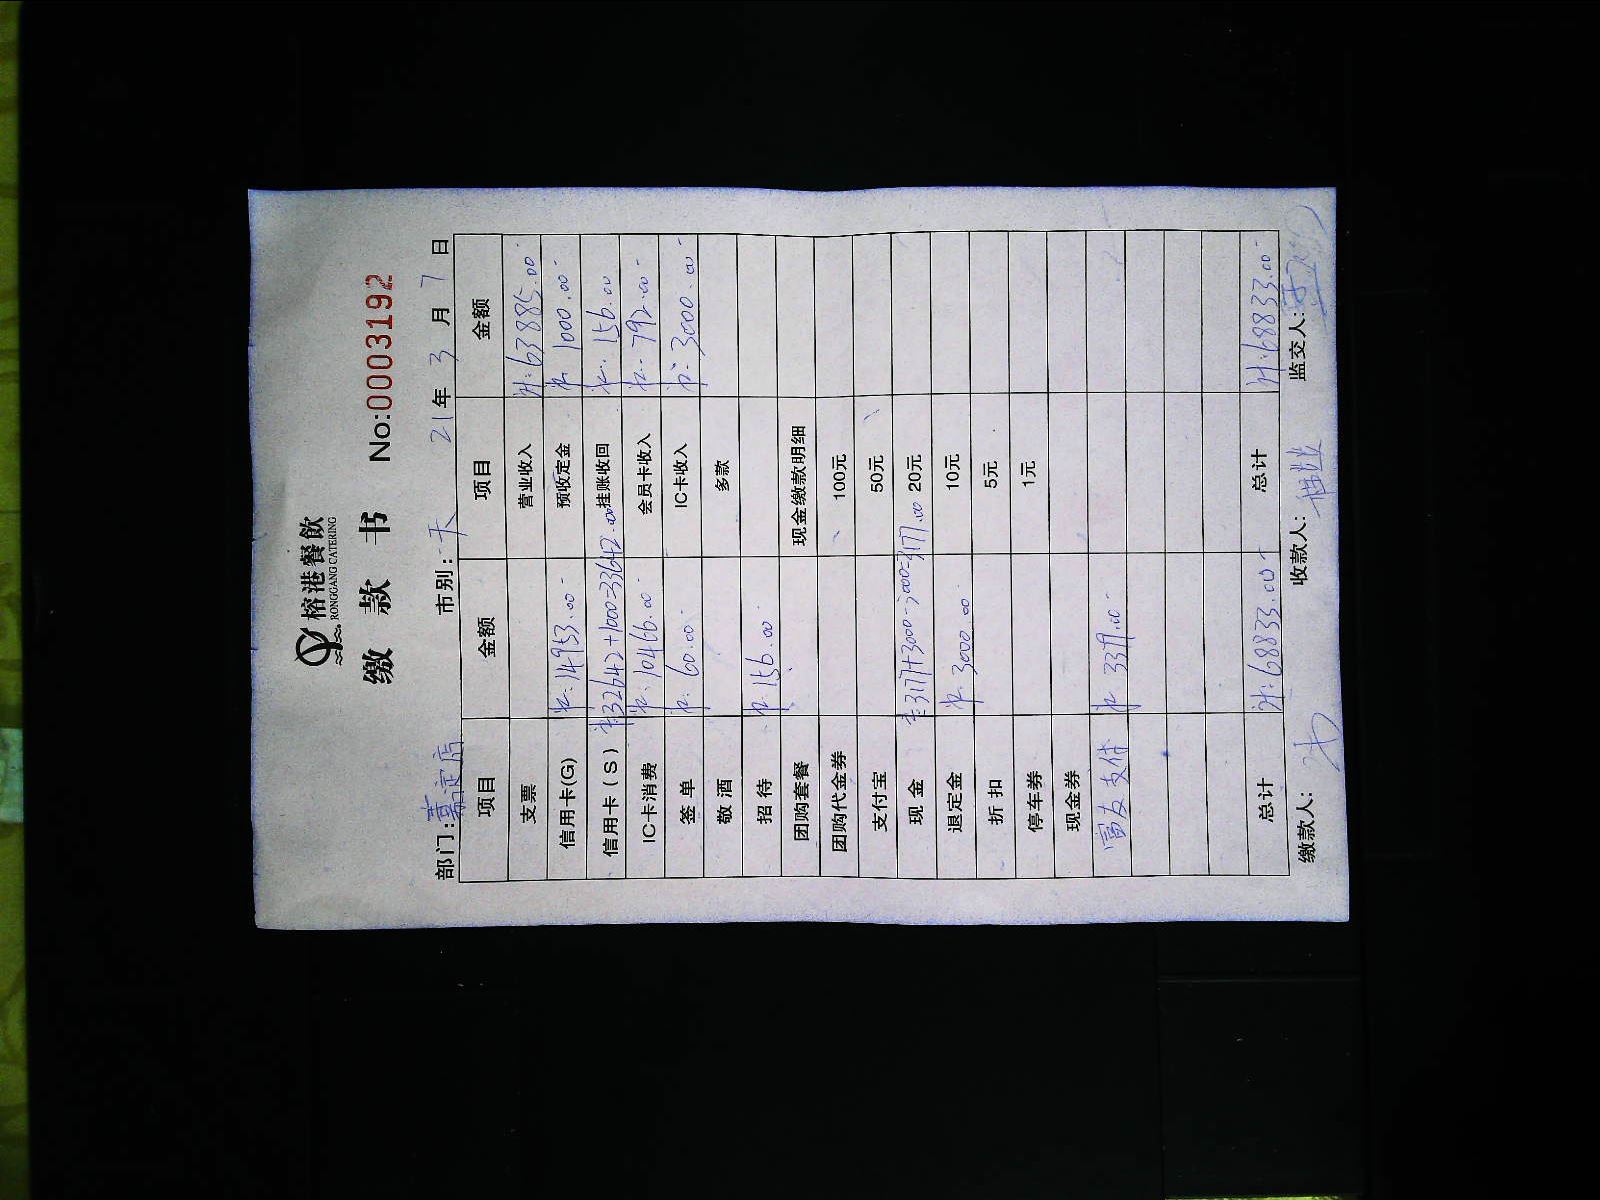 榕港餐飲
RONGGANG CATERING
缴 款 书 No:0003192
部门:嘉定店 市别:天 21年 3月 7日
项目 金额 项目 金额
支票 营业收入 ¥:63885.00
信用卡(G) ¥:14953.00 预收定金 ¥:1000.00
信用卡(S) ¥:32642+1000=33642.00 挂账收回 ¥:156.00
IC卡消费 ¥:10466.00 会员卡收入 ¥:792.00
签单 ¥:60.00 IC卡收入 ¥:3000.00
敬酒 多款
招待 ¥:156.00
团购套餐 现金缴款明细
团购代金券 100元
支付宝 50元
现金 ¥:3177+3000-3000=3177.00 20元
退定金 ¥:3000.00 10元
折扣 5元
停车券 1元
现金券
富友支付 ¥:3379.00
总计 ¥:68833.00 总计 ¥:68833.00
缴款人: 收款人: 监交人: